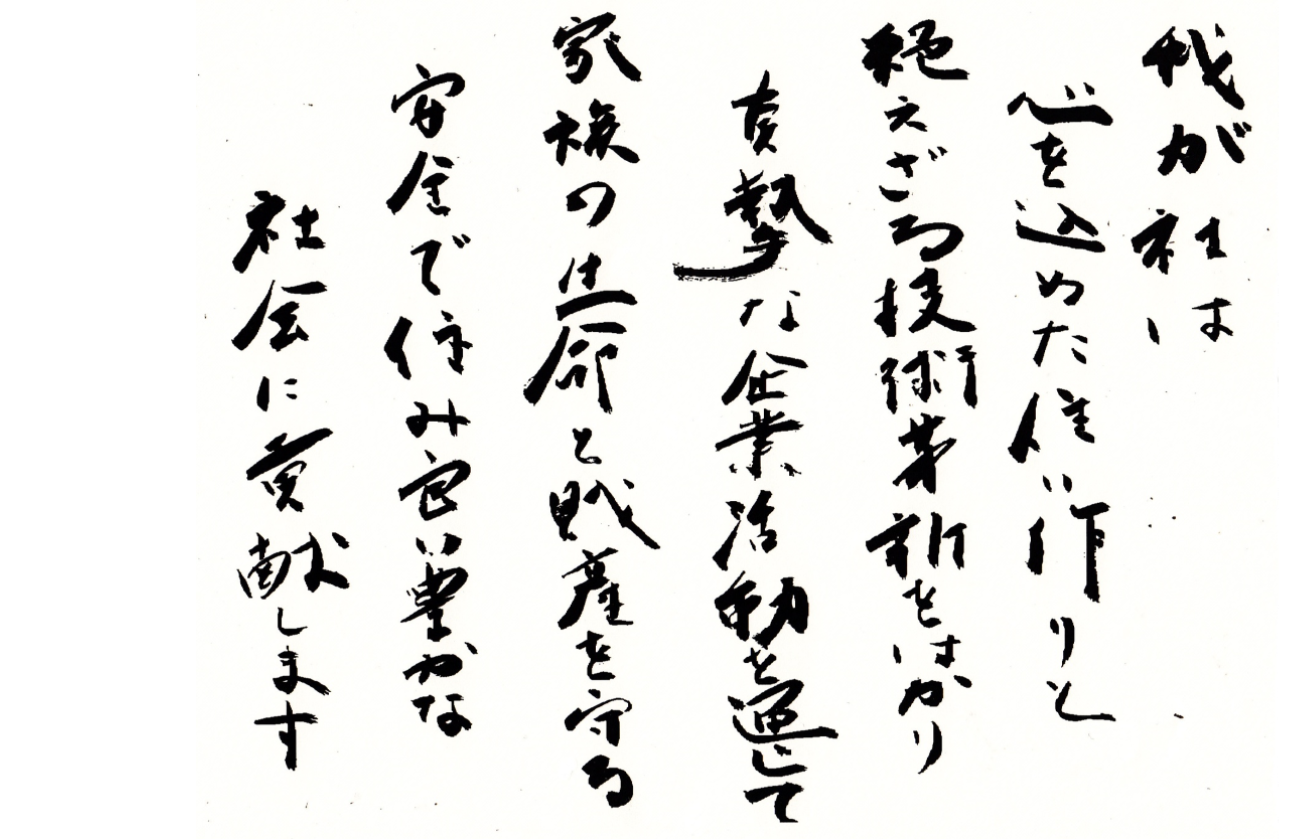 我が社は
心を込めた住い作りと
絶えざる技術革新をはかり
真摯な企業活動を通じて
家族の生命と財産を守る
安全で住み良い豊かな
社会に貢献します